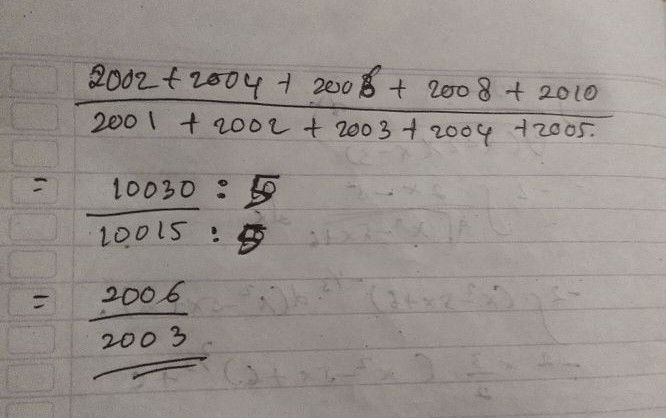 2002 + 2004 + 2006 + 2008 + 2010
2001 + 2002 + 2003 + 2004 + 2005.
= 10030 : 5
10015 : 5
= 2006
2003